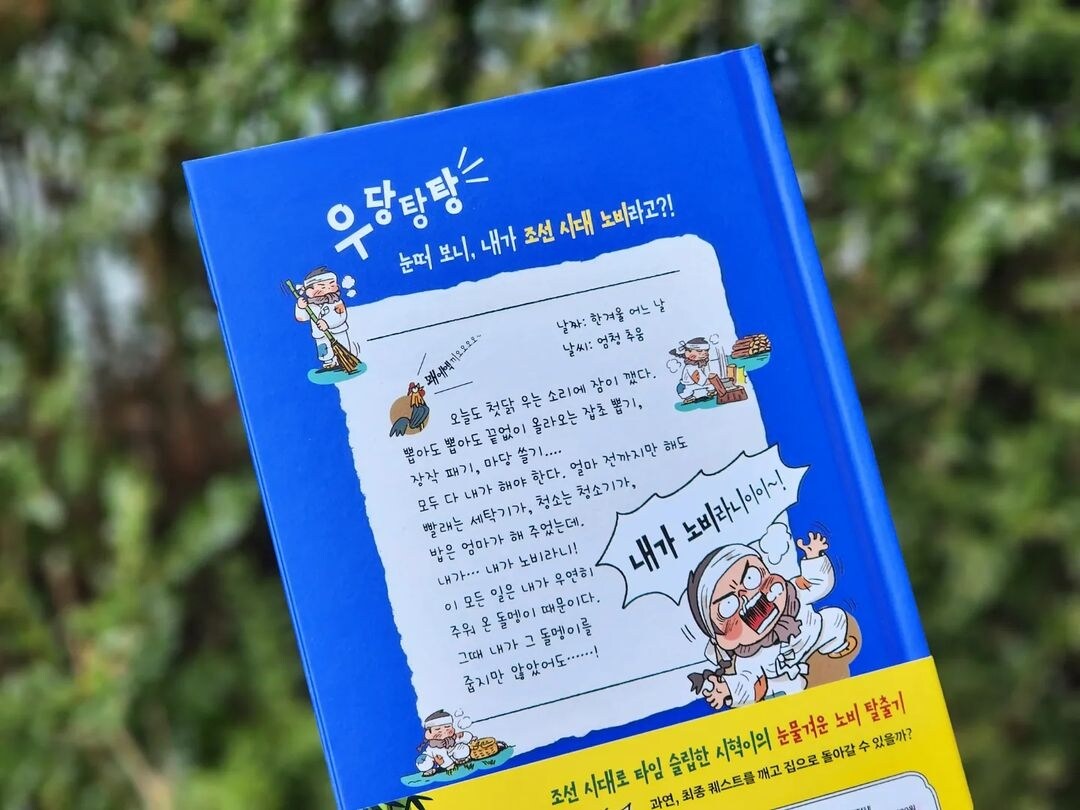 우당탕탕
눈떠 보니, 내가 조선 시대 노비라고?!
날짜: 한겨울 어느 날
날씨: 엄청 추움
꽤애액끼오오오오~
오늘도 첫닭 우는 소리에 잠이 깼다.
뽑아도 뽑아도 끝없이 올라오는 잡초 뽑기,
장작 패기, 마당 쓸기....
모두 다 내가 해야 한다. 얼마 전까지만 해도
빨래는 세탁기가, 청소는 청소기가,
밥은 엄마가 해 주었는데.
내가… 내가 노비라니!
이 모든 일은 내가 우연히
주워 온 돌멩이 때문이다.
그때 내가 그 돌멩이를
줍지만 않았어도……!
내가 노비라니이이~!
조선 시대로 타임 슬립한 시혁이의 눈물겨운 노비 탈출기
과연, 최종 퀘스트를 깨고 집으로 돌아갈 수 있을까?